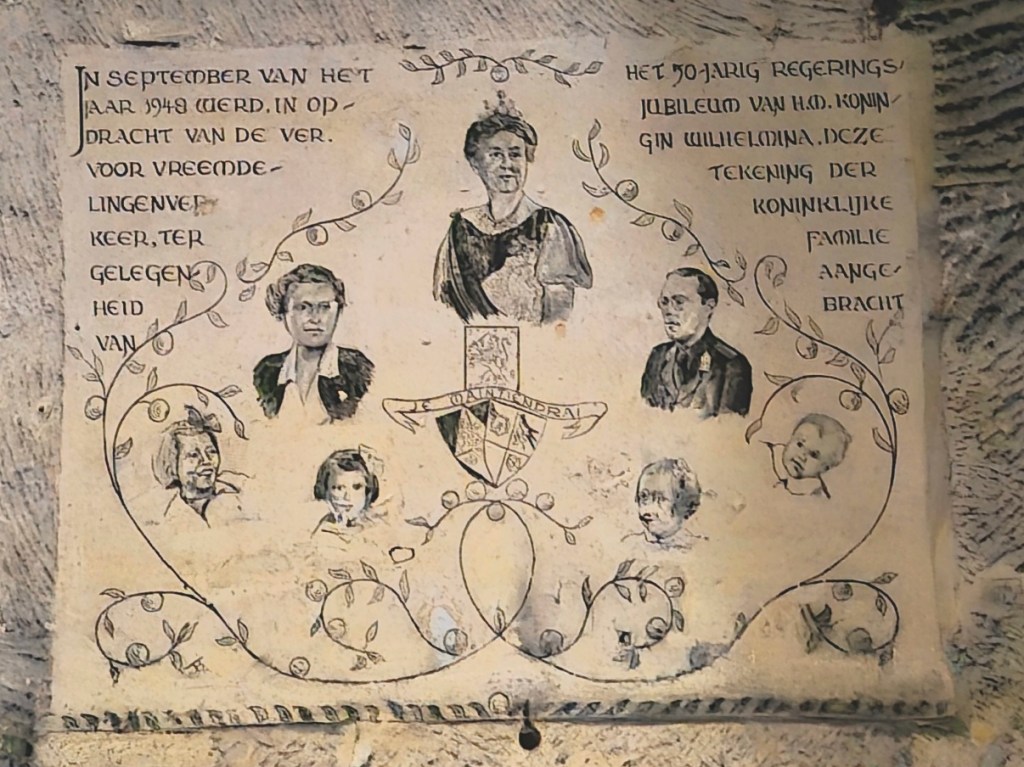 IN SEPTEMBER VAN HET
JAAR 1948 WERD, IN OP-
DRACHT VAN DE VER.
VOOR VREEMDE-
LINGENVER-
KEER, TER
GELEGEN-
HEID
VAN
HET 50-JARIG REGERINGS-
JUBILEUM VAN H.M. KONIN-
GIN WILHELMINA, DEZE
TEKENING DER
KONINKLIJKE
FAMILIE
AANGE-
BRACHT
JE MAINTIENDRAI